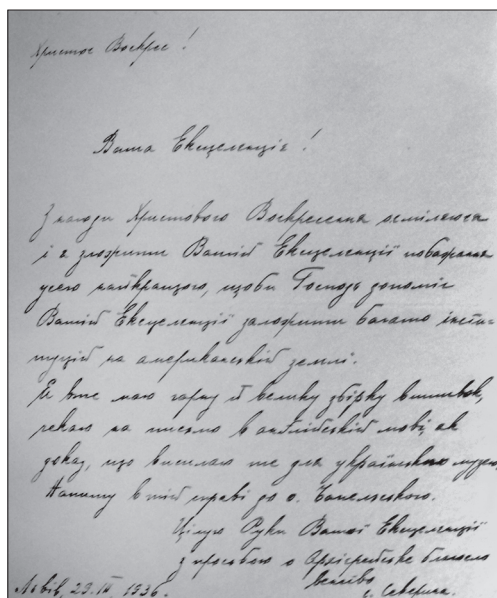 Христос Воскрес!
Ваша Ексцеленціє!
З нагоди Христового Воскресення осмілююся
і я зложити Вашій Ексцеленції побажання
усего найкращого, щоби Господь допоміг
Вашій Ексцеленції заложити багато інсти-
туцій на американській землі.
Я вже маю гарну й велику збірку вишивок,
чекаю на письмо в англійській мові, як
доказ, що висилаю те для українського музею.
Напишу в тій праві до о.
Цілую Руки Вашої Ексцеленції
з просьбою о Архієрейське благосло-
венство
с. Северина.
Львів, 29.III 1936.